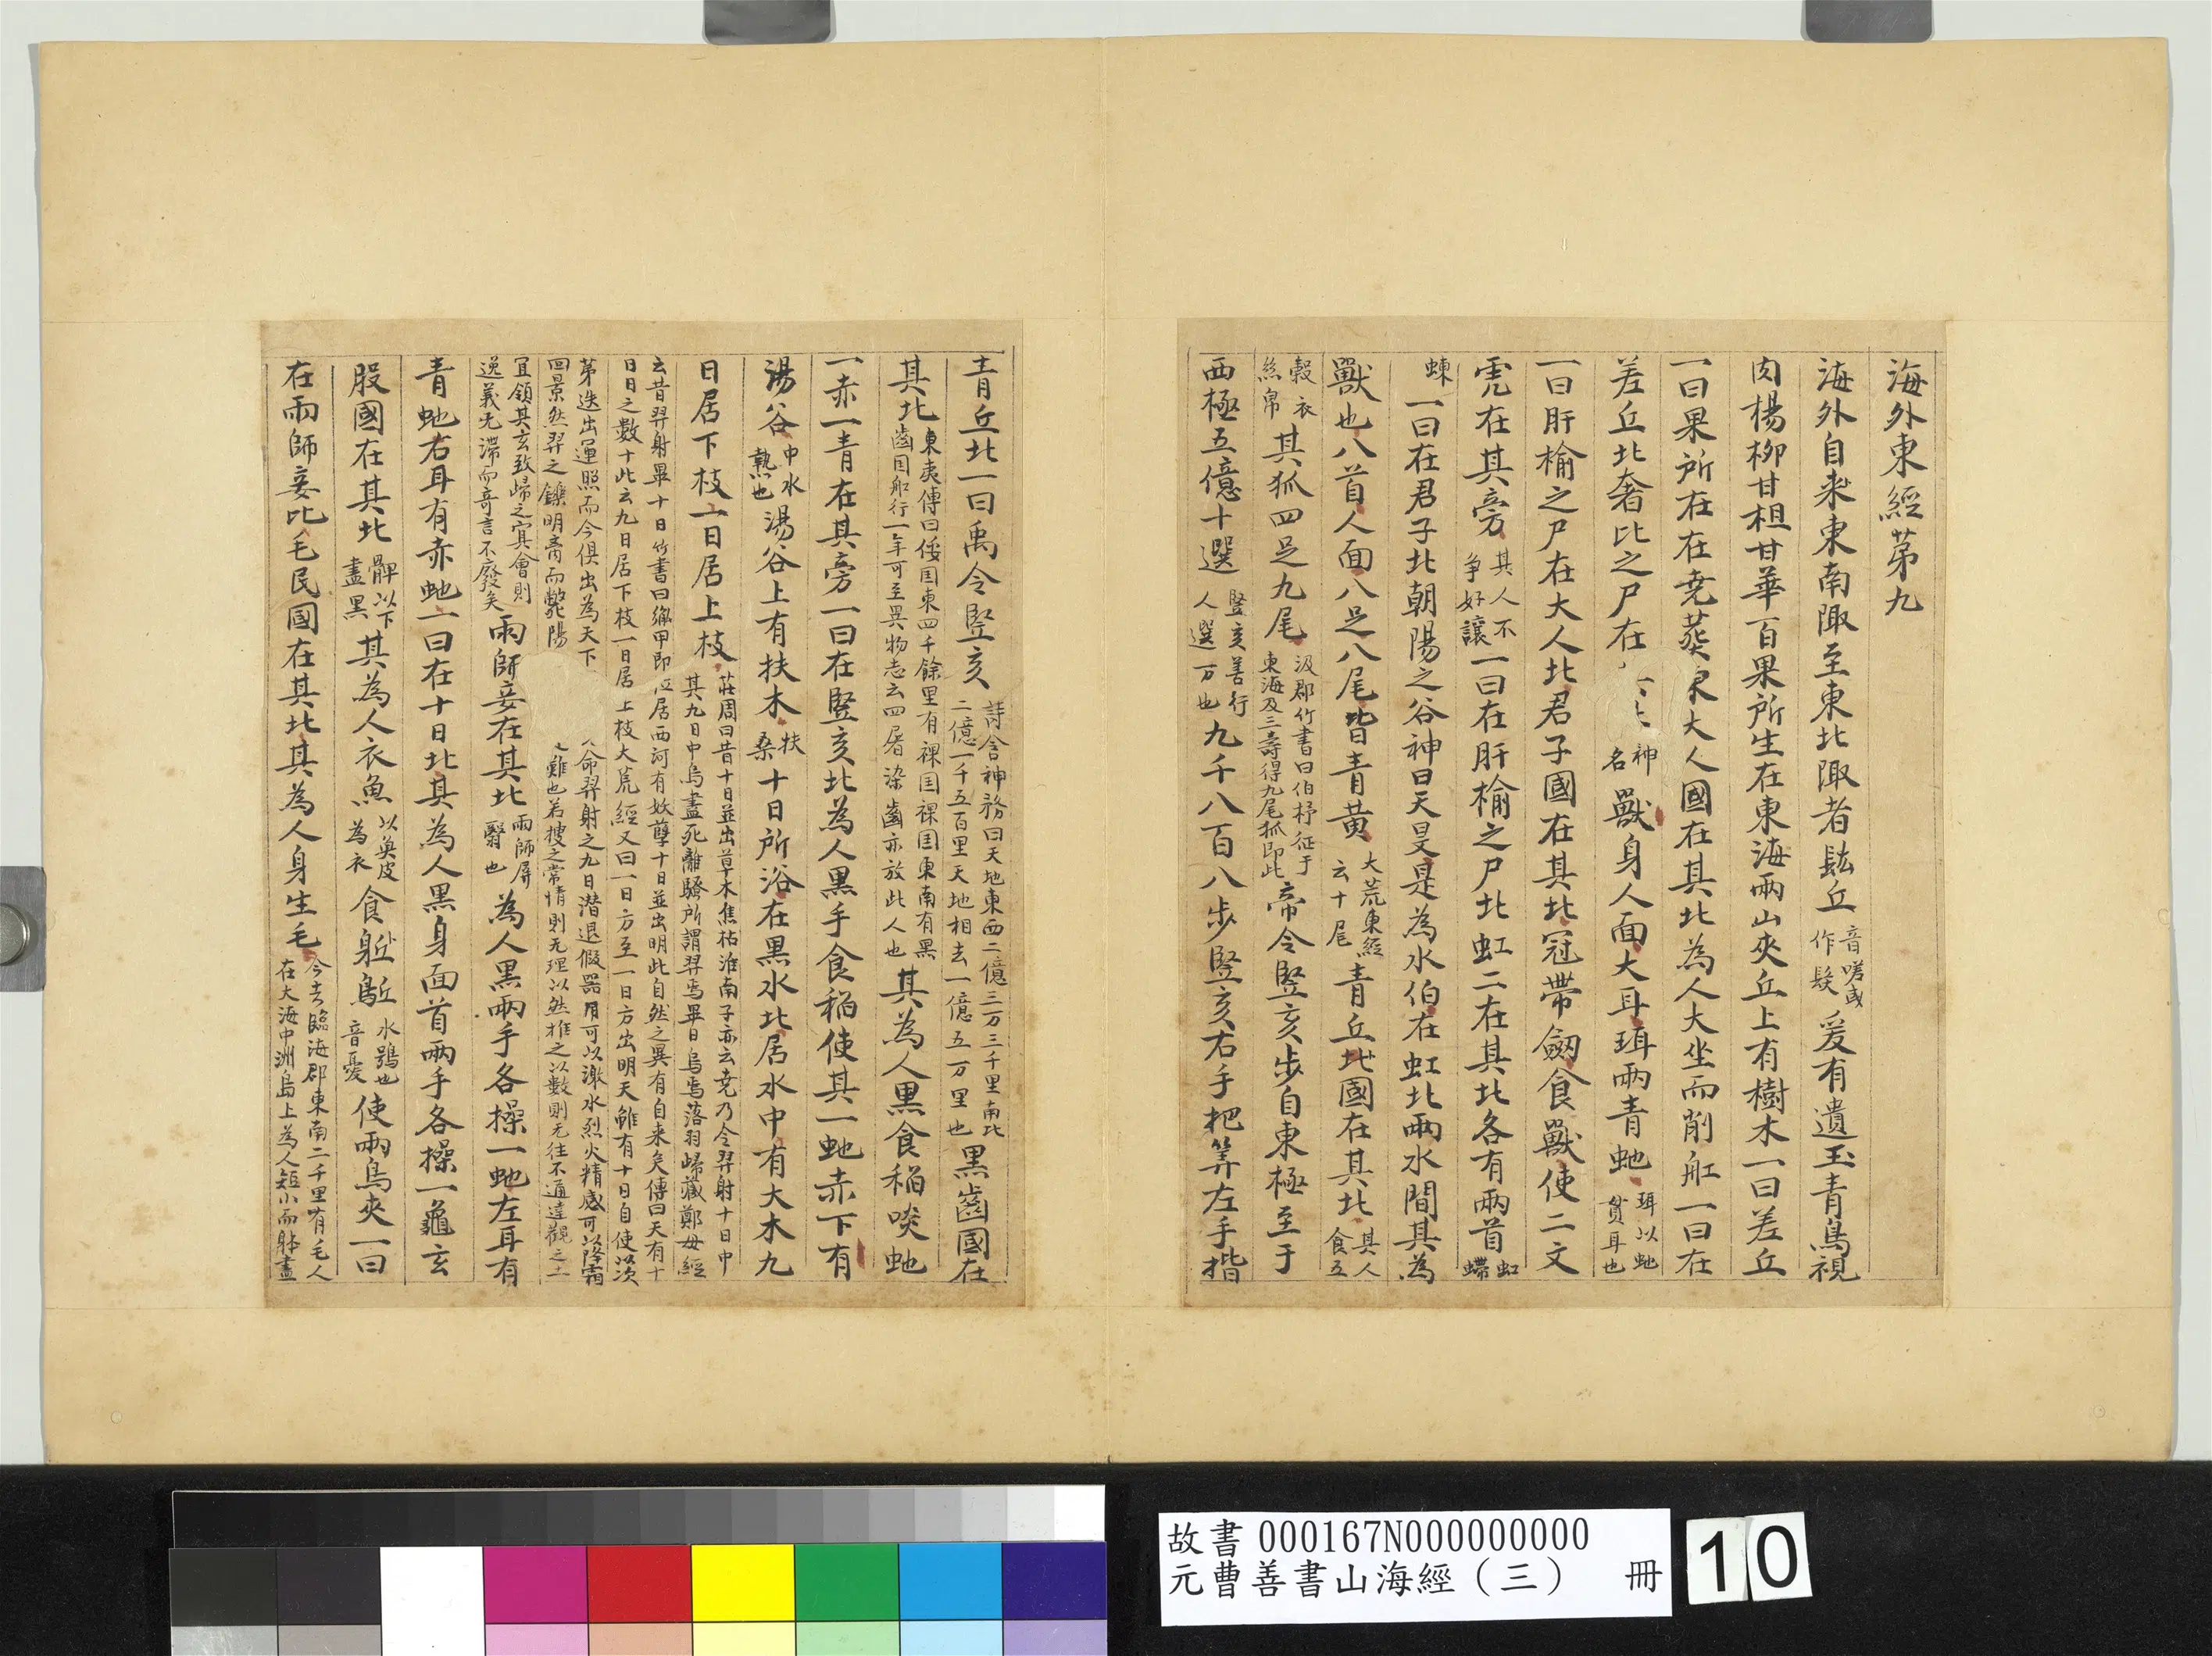 海外東經苐九
海外自東東南陬至東北陬者䰃丘音嗟或作髮爰有遺玉青鳥視
肉楊栁甘柤甘華百果所生在東海兩山夾丘上有樹木一曰差丘
一曰果所在在尭葬東大人國在其北為人大坐而削舡一曰在
差丘北奢比之尸在神名獸身人面大耳珥兩青虵珥以虵貫耳也
一曰肝榆之尸在大人北君子國在其北冠帶劔食獸使二文
虎在其旁其人不争好讓一曰在肝榆之尸北虹二在其北各有兩首虹螮
蝀一曰在君子北朝陽之谷神曰天旲是為水伯在虹北兩水間其為
獸也八首人面八足八尾皆青黄大荒東經云十尾青丘國在其北其人食五
榖衣絲帛其狐四足九尾汲郡竹書曰伯杼征于東海及三壽得九尾狐即此帝令竪亥步自東極至于
西極五億十選竪亥善行人選万也九千八百八步竪亥右手把筭左手揩
青丘北一曰禹令竪亥詩含神務曰天地東西二億三万三千里南北二億一千五百里天地相去一億五万里也黒齒國在
其北東夷傳曰倭国東四千餘里有裸国裸国東南有黒齒国舩行一年可至異物志云四屠染齒亦放此人也其為人黒食稻啖虵
一赤一青在其旁一曰在竪亥北為人黒手食稻使其一虵赤下有
湯谷中水熱也湯谷上有扶木扶桑十日所浴在黒水北居水中有大木九
日居下枝一日居上枝荘周曰昔十日並出草木焦枯淮南子亦云尭乃令羿射十日中其九日中烏盡死離騷所謂羿焉畢日烏焉落羽歸藏鄭母經
云昔羿射畢十日竹書曰胤甲即位居西河有妖孽十日並出明此自然之異有自来矣傳曰天有十日日之數十此云九日居下枝一日居上枝大荒經又曰一日方至一日方出明天雖有十日自使以次
苐迭出運照而今俱出為天下命羿射之九日潛退假器用可以激水烈火精感可以降霜回景然羿之鑠明青而斃陽難也若搜之常情則无理以然推之以數則无往不通達觀之士
宜領其玄致歸之㝠會則逸義无滯而竒言不廢矣雨師妾在其北雨師屏翳也為人黒兩手各操一虵左耳有
青虵右耳有赤虵一曰在十日北其為人黒身面首兩手各操一龜玄
股國在其北髀以下盡黒其為人衣魚以魚皮為衣食䳼水鴞也音憂使兩鳥夾一曰
在雨師妾北毛民國在其北其為人身生毛今去臨海郡東南二千里有毛人在大海中洲島上為人短小而躰盡
故書 000167N000000000
元曹善書山海經（三） 冊
10